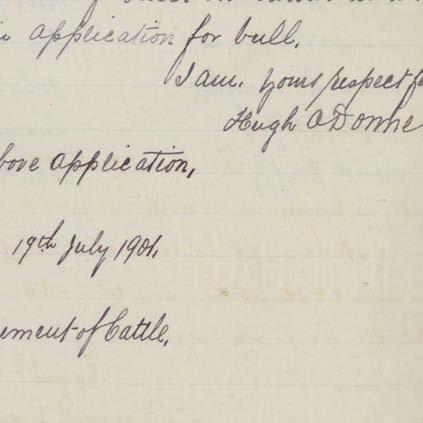 application for bull.
I am. yours respectf
Hugh O'Donne
bove application,
19th July 1901.
ement of Cattle,